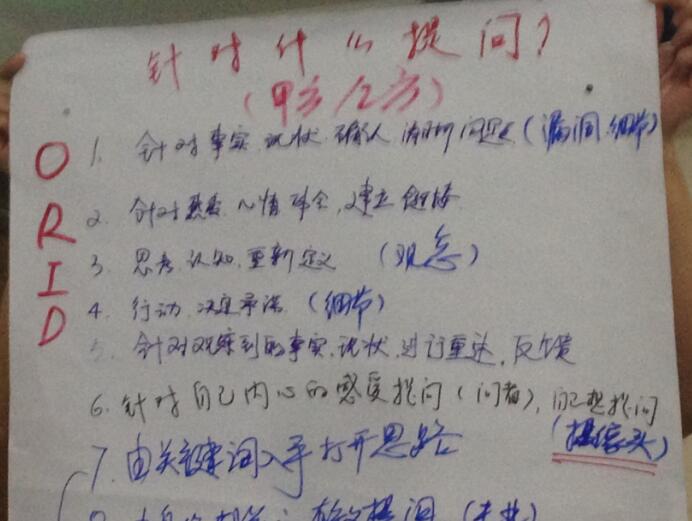 针对什么提问?
(甲方/乙方)
O 1. 针对事实、现状、确认 清晰问题 (漏洞、细节)
R 2. 针对 心情 建立链接
I 3. 思考、认知、重新定义 (观念)
D 4. 行动、决定承诺 (细节)
5. 针对观察到的事实、现状、进行重述、反馈
6. 针对自己内心的感受提问(问者),自己想提问
(摄像头)
7. 由关键词入手打开思路